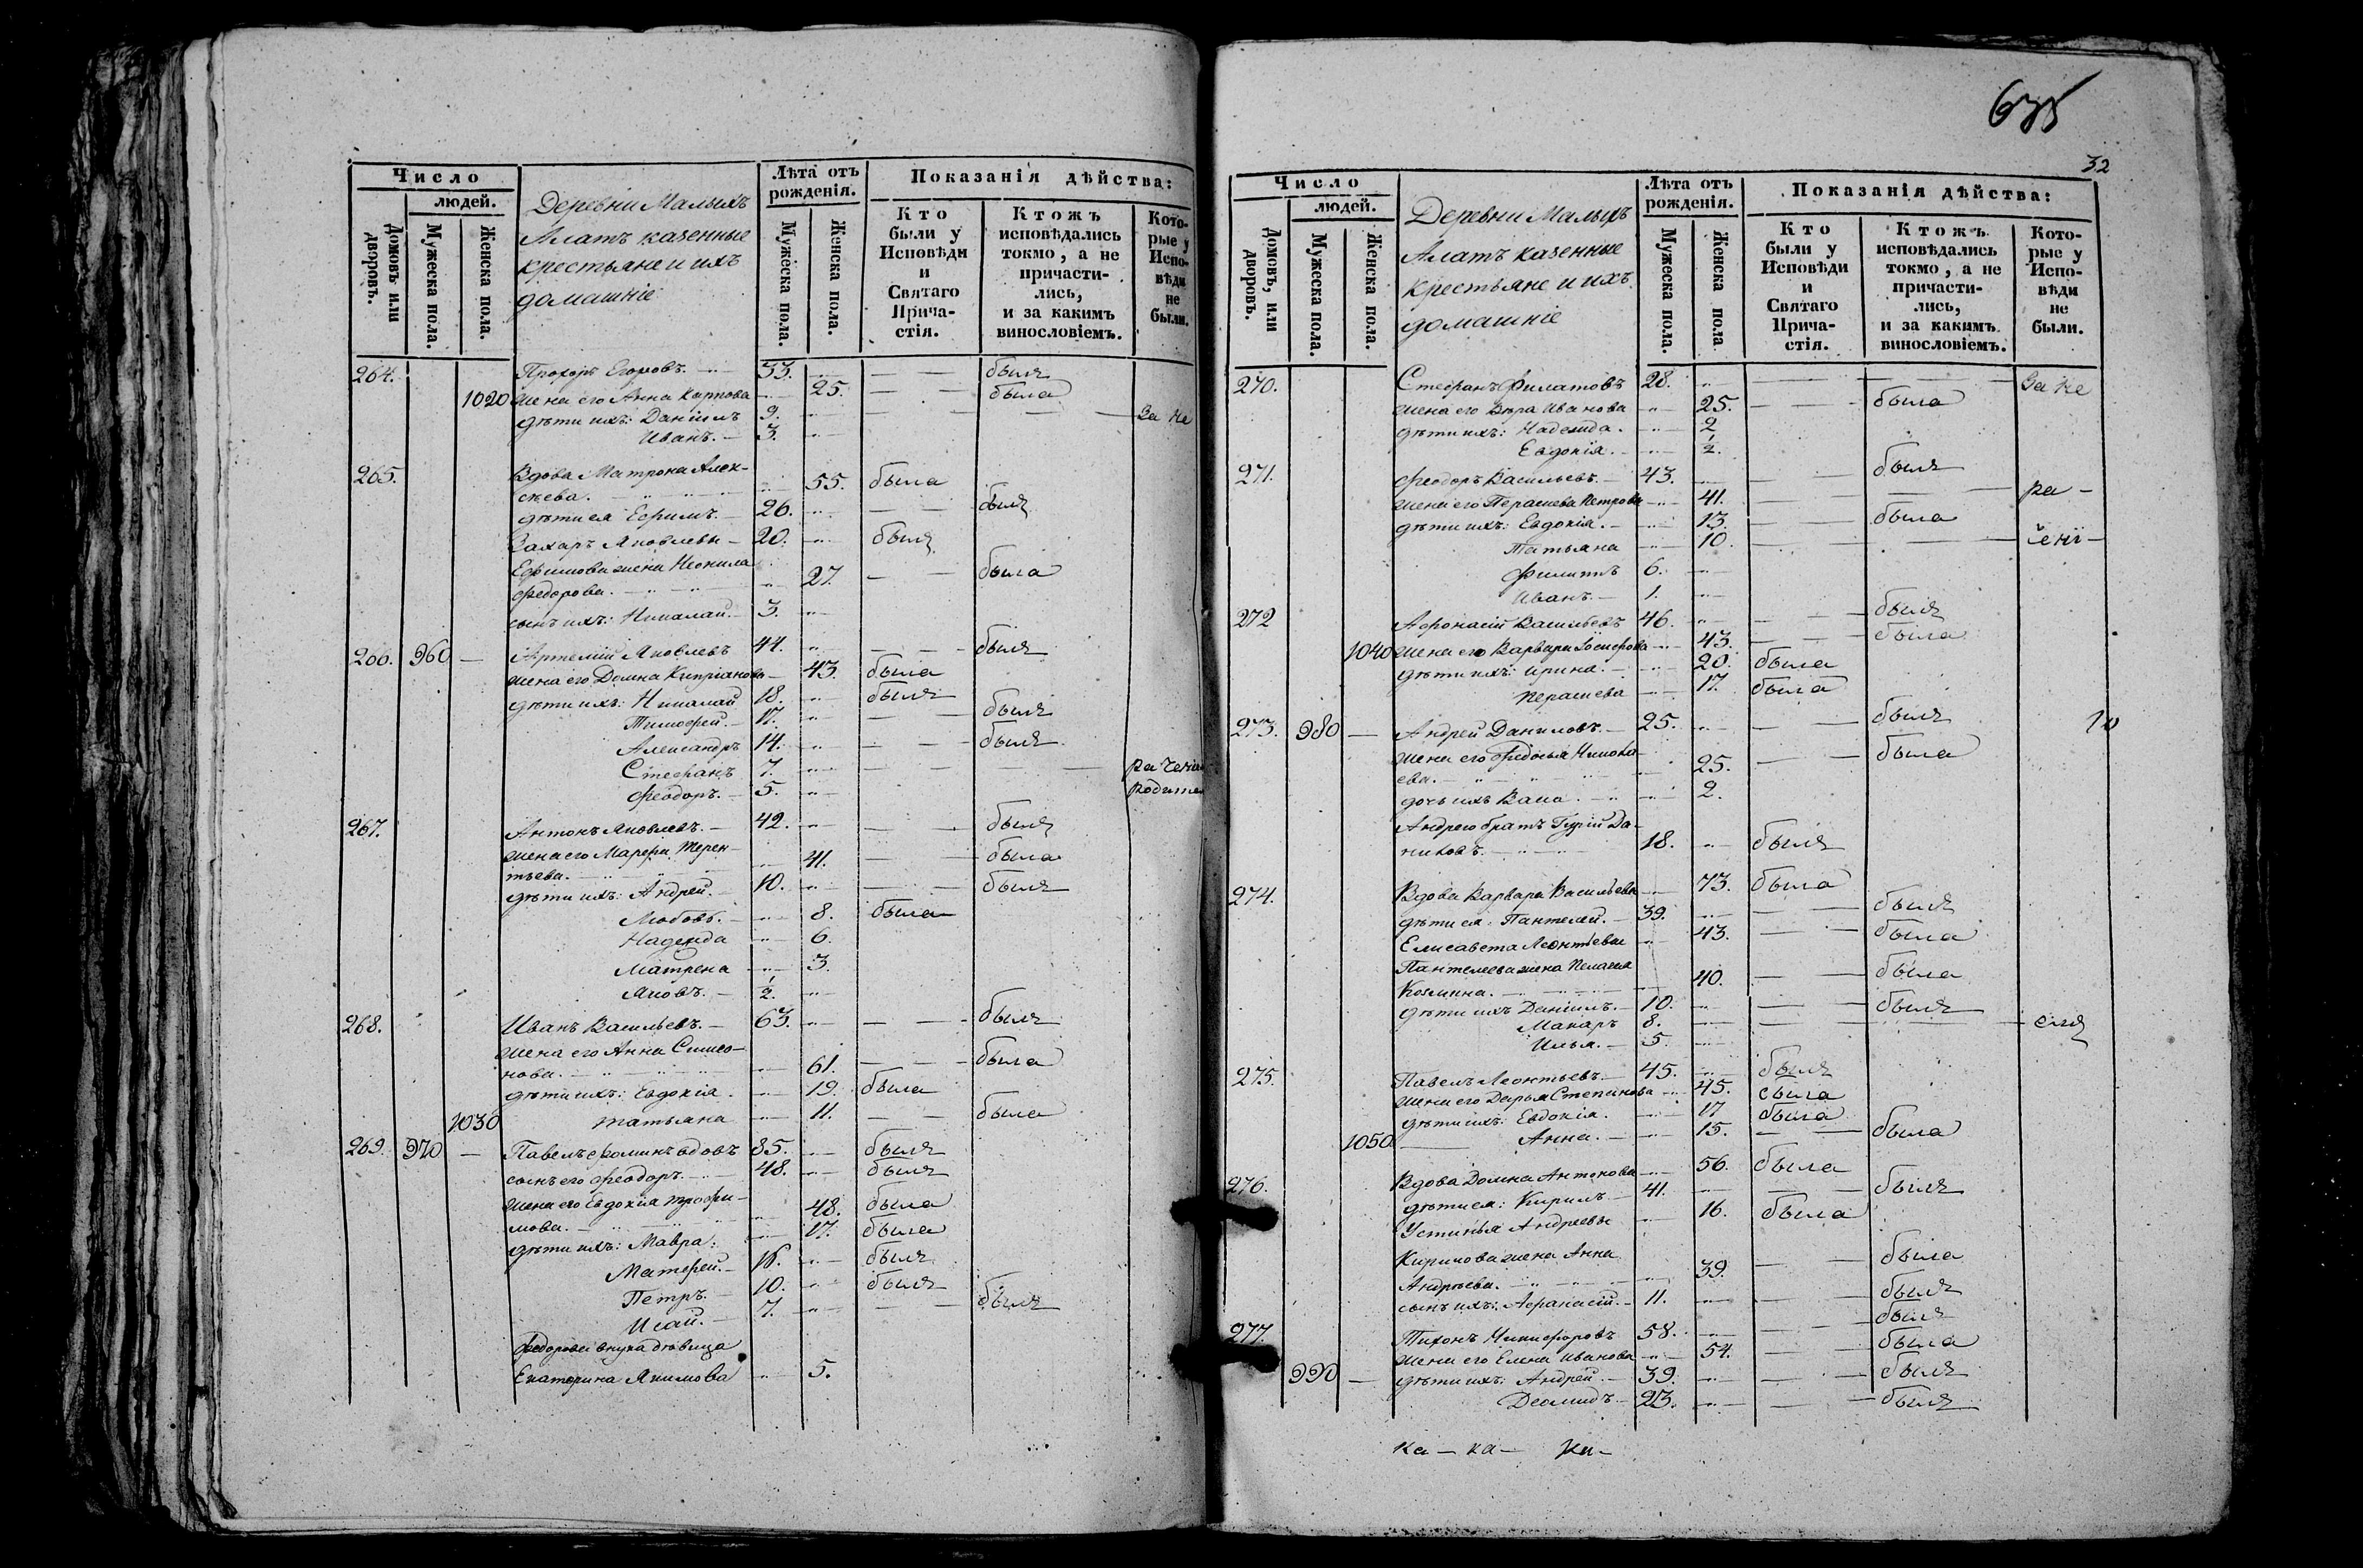 Число
людей.
Домовъ или дворовъ.
Мужеска пола.
Женска пола.
Деревни Малыхъ
Алатъ казенные
крестьяне и ихъ
домашніе
Лѣта отъ
рожденія.
Мужеска пола.
Женска пола.
Показанія дѣйства:
Кто
были у
Исповѣди
и
Святаго
Прича-
стія.
Ктожъ
исповѣдались
токмо, а не
причасти-
лись,
и за какимъ
винословіемъ.
Кото-
рые у
Испо-
вѣди
не
были.
264. Прохоръ Егоровъ. 53. былъ
1020 жена его Анна Карпова 25. была
дѣти ихъ: Даніилъ 9. За не
Иванъ. 3.
265. Вдова Матрона Алек-
сѣева. 55. была
дѣти ея Ефимъ. 26. былъ
Захаръ Яковлевы 20. былъ
Ефимова жена Неонила
Федорова. 27. была
сынъ ихъ: Николай. 3.
266. 960 Артемій Яковлевъ 44. былъ
жена его Домна Кипріанова 43. была
дѣти ихъ: Николай 18. былъ
Тимофей. 17. былъ
Александръ 14. былъ
Стефанъ 7. ра чені
Феодоръ. 5. родите
267. Антонъ Яковлевъ. 42. былъ
жена его Марфа Терен-
тьева. 41. была
дѣти ихъ: Андрей. 10. былъ
Любовь. 8. была
Надежда 6.
Матрена 3.
Яковъ. 1/2.
268. Иванъ Васильевъ. 63. былъ
жена его Анна Симео-
нова. 61. была
дѣти ихъ: Евдокія. 19. была
1030 Татьяна 11. была
269. 970 Павелъ Фоминъ вдовъ 85. былъ
сынъ его Феодоръ. 48. былъ
жена его Евдокіа Трофи-
мова. 48. была
дѣти ихъ: Мавра. 17. была
Матфей. 16. былъ
Петръ. 10. былъ
Исай. 7. былъ
Федорова внука дѣвица
Екатерина Якимова 5.
635
32
Число
людей.
Домовъ, или дворовъ.
Мужеска пола.
Женска пола.
Деревни Малыхъ
Алатъ казенные
крестьяне и ихъ
домашніе
Лѣта отъ
рожденія.
Мужеска пола.
Женска пола
Показанія дѣйства:
Кто
были у
Исповѣди
и
Святаго
Прича-
стія.
Ктожъ
исповѣдались
токмо, а не
причасти-
лись,
и за какимъ
винословіемъ.
Кото-
рые у
Испо-
вѣди
не
были.
270. Стефанъ Филатовъ 28. За не
жена его Вѣра Иванова 25. была
дѣти ихъ: Надежда. 2
Евдокія. 1/2.
271. Феодоръ Васильевъ. 43. былъ
жена его Перасцева Петрова 41. ра-
дѣти ихъ: Евдокія. 13. была
Татьяна 10. чені-
Филипъ 6.
Иванъ. 1.
272 Афонасій Васильевъ 46. былъ
1040 жена его Варвара Іосифова 43. была
дѣти ихъ: Ирина. 20. была
Перасцева 17. была
273. 980 Андрей Даниловъ. 25. былъ
жена его Федосья Никола-
ева. 25. была
дочь ихъ Васа. 2.
Андрея братъ Гурій Да-
ниловъ. 18. былъ
274. Вдова Варвара Васильева 73. была
дѣти ея: Пантелей. 39. былъ
Елисавета Леонтьевы 43. была
Пантелеева жена Пелагея
Козмина. 40. была
дѣти ихъ Даніилъ. 10. былъ
Макаръ 8.
Илья. 5.
275. Павелъ Леонтьевъ. 45. былъ
жена его Дарья Степанова 45. была
дѣти ихъ: Евдокія. 17 была
1050 Анна. 15. была
276. Вдова Домна Антонова 56. была
дѣти ея: Кирилъ. 41. былъ
Устинья Андреевы 16. была
Кирилова жена Анна
Андрѣева. 39. была
сынъ ихъ: Афанасій. 11. былъ
277. Тихонъ Никифоровъ 58. былъ
жена его Елена Иванова 54. была
990 дѣти ихъ: Андрей. 39. былъ
Деомидъ 23. былъ
ка — ка —